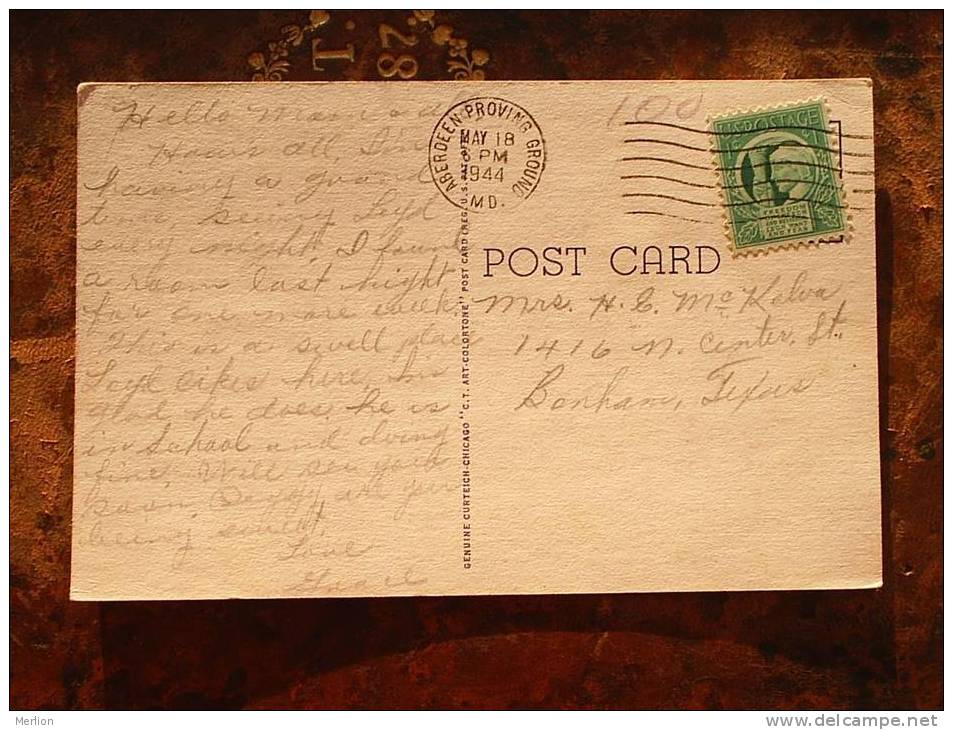 Hello Mom and
How's all, I'm
having a grand
time seeing Loyd
every night. I found
a room last night
for one more week.
This is a swell place
Loyd likes here, I'm
glad he does, he is
in School and doing
fine. Will see you
soon, are you
being sweet.
Love
ABERDEEN PROVING GROUND
MAY 18
6 PM
1944
MD.
100
U.S. POSTAGE
1¢
FREEDOM
OF SPEECH
AND RELIGION
FROM WANT
AND FEAR
POST CARD
Mrs. H. E. McKelva
1416 N. Center. St.,
Bonham, Texas
GENUINE CURTEICH-CHICAGO "C.T. ART-COLORTONE" POST CARD (REG. U.S. PAT. OFF.)
T.
28
Merlion
www.delcampe.net